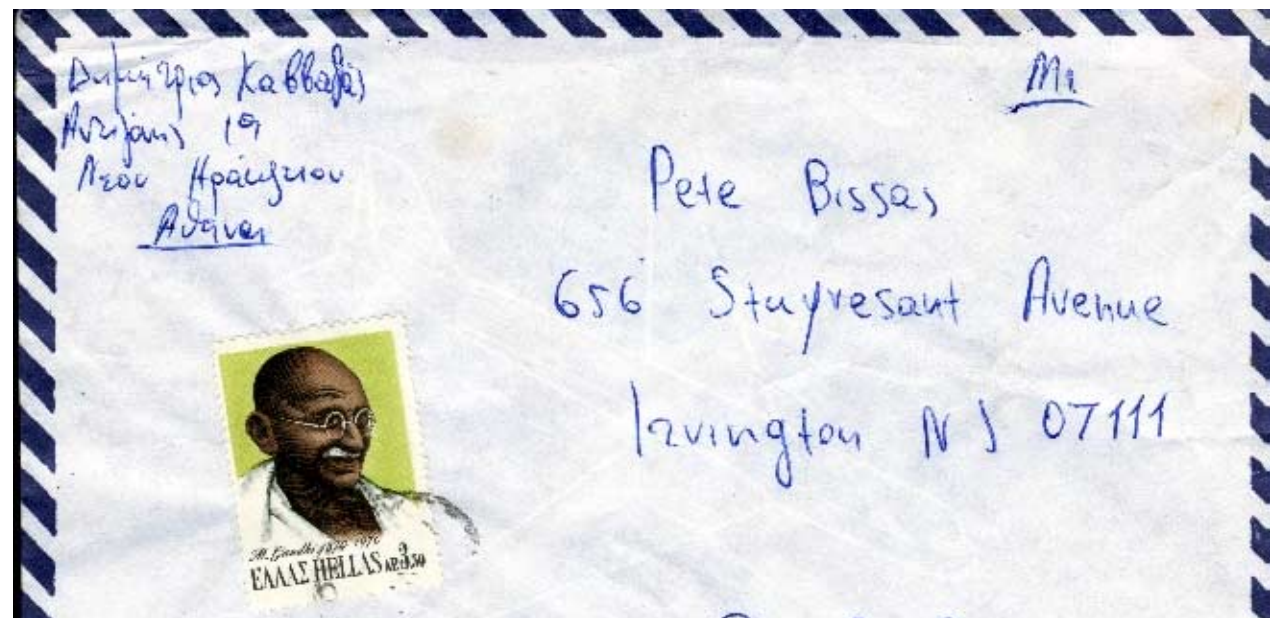 Δημήτριος Καββαδάς
19
Νέου Ηράκλειου
Αθήναι
Mr
Pete Bissas
656 Stuyvesant Avenue
Irvington NJ 07111
M. Gandhi 1970
ΕΛΛΑΣ HELLAS ΔΡ. 3.50